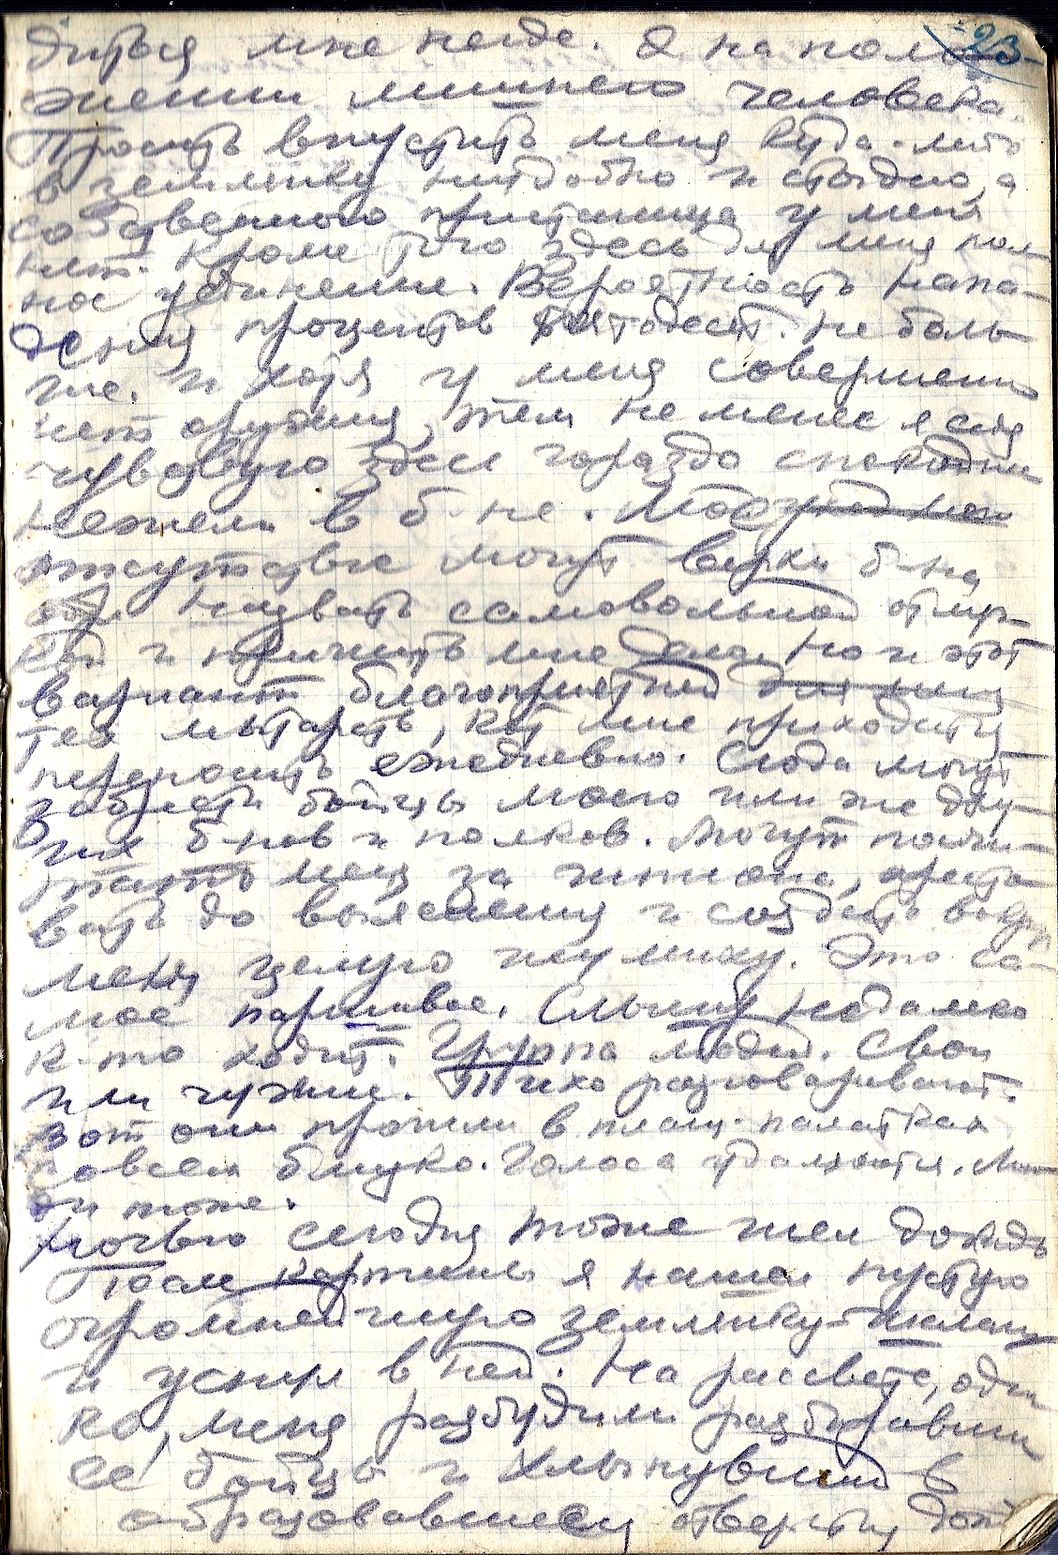 23
диться мне негде. Я на поло-
жении лишнего человека.
Просить впустить меня куда-либо
в землянку неудобно и стыдно, а
собственного пристанища у меня
нет. Кроме того здесь для меня пол-
ное уединение. Вероятность напа-
дения процентов пятьдесят. не боль-
ше. И хотя у меня совершенно
нет оружия, тем не менее я себя
чувствую здесь гораздо спокойнее
нежели в б-не. Мое
отсутствие могут верхи б-на
назвать самовольной отлуч-
кой и пришить мне дело. Но и этот
вариант благоприятней для меня
тех мытарств, кот. мне приходится
переносить ежедневно. Сюда могут
забрести бойцы моего или же дру-
гих б-нов и полков. Могут посчи-
тать меня за шпиона, аресто-
вать до выяснения и создать вокруг
меня целую шумиху. Это са-
мое паршивое. Слышу недалеко
к-то ходит. Группа людей. Свои
или чужие. Тихо разговаривают.
Вот они прошли в плащ-палатках
совсем близко. Голоса удаляются. Лю-
ди тоже.
Ночью сегодня тоже шел дождь
После картины я нашел пустую
огромнейшую землянку-шалаш
и уснул в ней. На рассвете, одна-
ко, меня разбудили разбиравшие
ее бойцы и хлынувший в
образовавшееся отверстие дождь